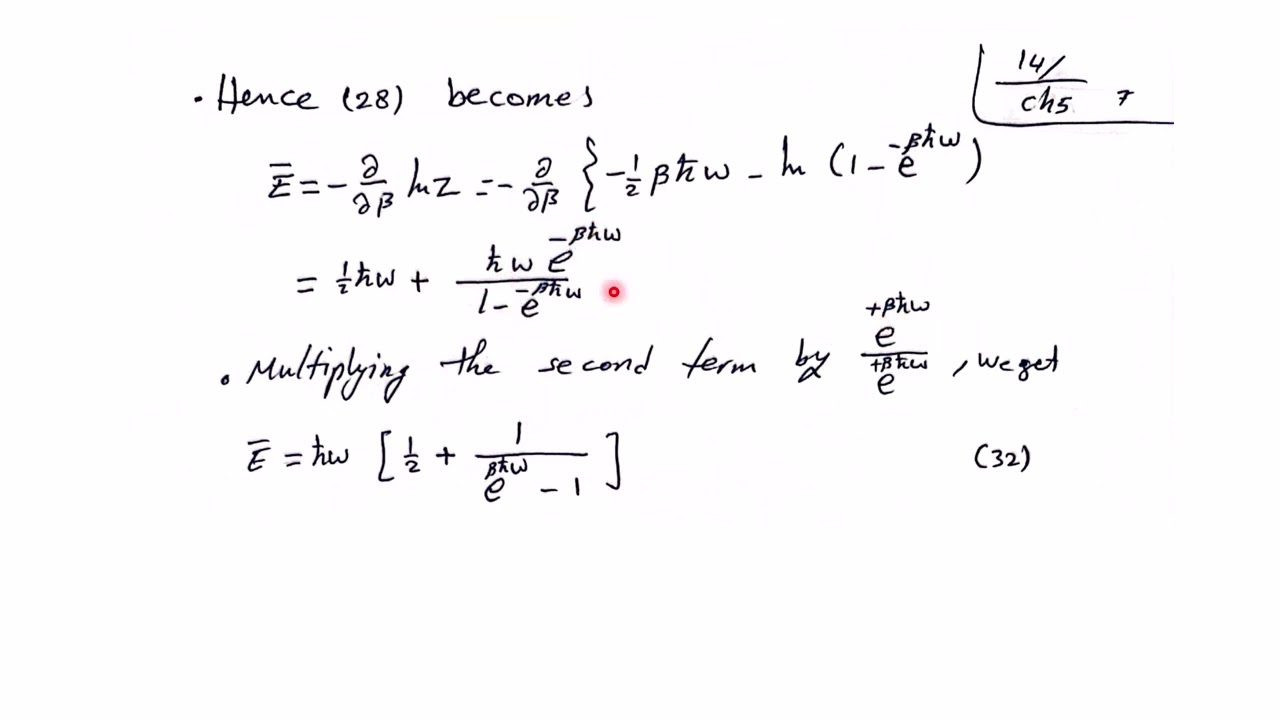 14/
ch5 7
• Hence (28) becomes
Ē = - ∂/∂β ln Z = - ∂/∂β { -½ βħω - ln (1 - e^{-βħω})
= ½ ħω + ħω e^{-βħω} / 1 - e^{-βħω}
• Multiplying the second term by e^{+βħω} / e^{+βħω} , we get
Ē = ħω [ ½ + 1 / e^{βħω} - 1 ] (32)